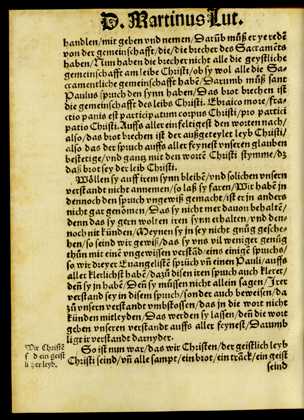 D. Martinus Lut.
handlen/mit geben vnd nemen/Darüb müß er ye redē
von der gemeinschafft/die/die brecher des Sacramēts
haben/Nun haben die brecher nicht alle die geystliche
gemeinschafft am leibe Christi/ob sy wol alle die Sa-
cramentliche gemeinschafft habē/Darumb müß sant
Paulus spruch den synn haben/Das brot brechen ist
die gemeinschafft des leibs Christi. Ebraico more/fra-
ctio panis est participatum corpus Christi/pro partici
patio Christi. Auffs aller einfeltigest den worten nach/
also/das brot brechen ist der außgeteylet leyb Christi/
also das der spruch auffs aller feynest vnseren glauben
bestetige/vnd gantz mit den wortē Christi stymme/dz
daß brot sey der leib Christi.
Wöllen sy auff irem synn bleibē/vnd solichen vnsern
verstandt nicht annemen/so laß sy faren/Wir habē jn
dennoch den spruch vngewiß gemacht/ist er jn anders
nicht gar genōmen/Das sy nicht mer dauon behaltē/
denn das sy gern wolten iren synn erhalten/vnd den-
noch nit künden/Meynen sy jn sey nicht gnüg gesche-
hen/so seind wir gewiß/das sy vns vil weniger genüg
thün mit eine vngewissen verstād/eins einigē spruchs/
so wir dreyer Euangelistē sprüch vn̄ einen Pauli/auffs
aller klerlichst habē/dazü disen iren spruch auch klerer/
den̄ sy jn habē/Den̄ sy müssen nicht allein sagen/Irer
verstand sey in disem spruch/sonder auch beweisen/da
zü vnsern verstandt vmbstossen/das in die wort nicht
künden mitleyden/Das werden sy lassen/den̄ die wort
geben vnseren verstandt auffs aller feynest/Darumb
ligt ir verstandt darnyder.
Wir Christē
sīd ein geist
licher leyb.
So ist nun war/das wir Christen/der geistlich leyb
Christi seind/vn̄ alle sampt/ein brot/ein trāck/ein geist
seind